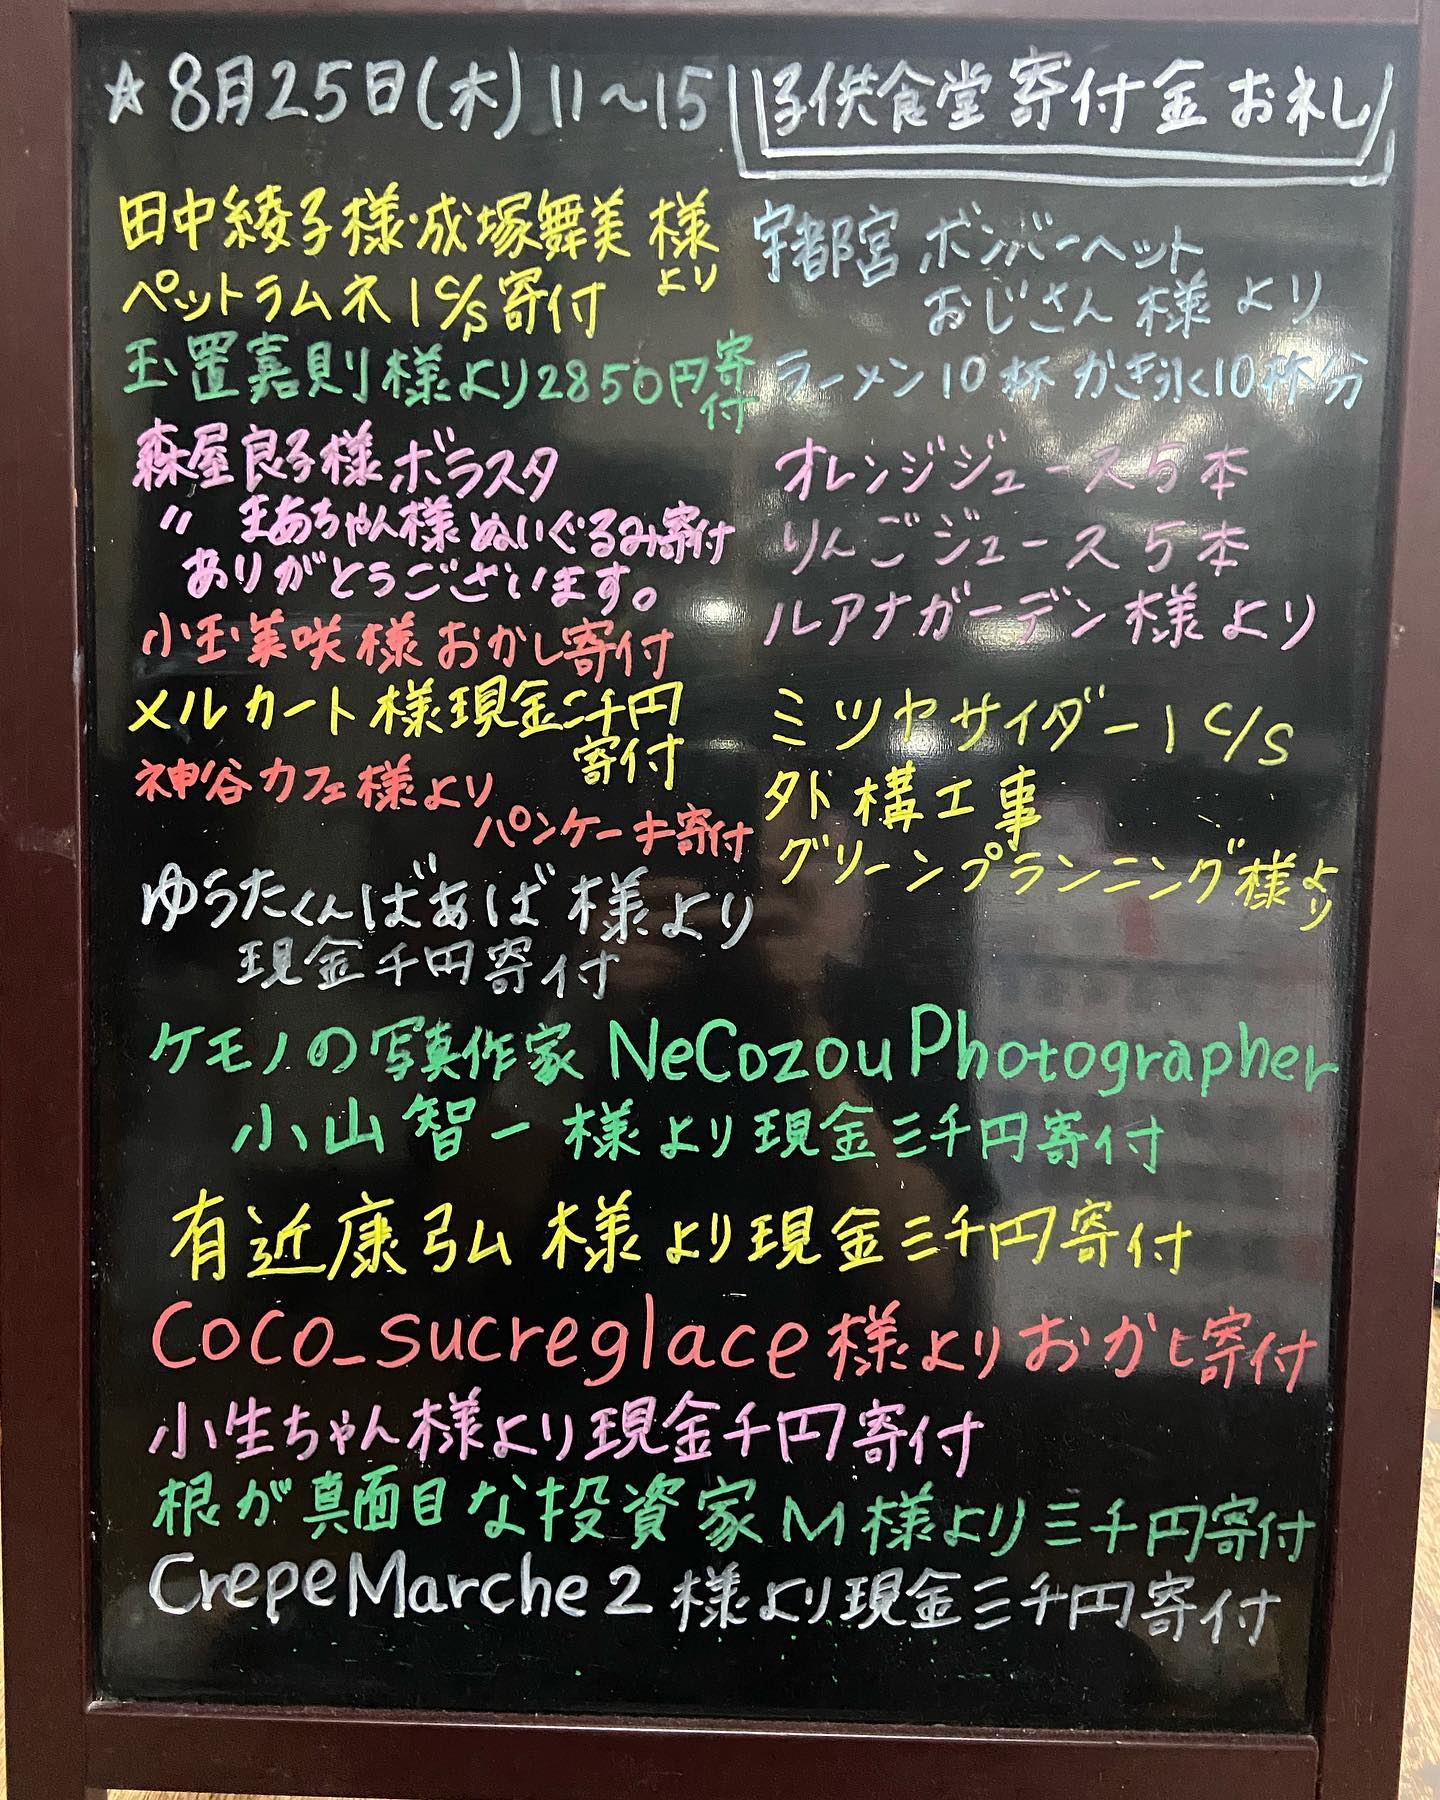 ☆8月25日(木)11〜15
子供食堂寄付金お礼
田中綾子様・成塚舞美様より
ペットラムネ1C/S寄付
玉置嘉則様より2850円寄付
森屋良子様ボラスタ
〃 まあちゃん様ぬいぐるみ寄付
ありがとうございます。
小玉美咲様おかし寄付
メルカート様現金二千円
寄付
神谷カフェ様より
パンケーキ寄付
ゆうたくんばぁば様より
現金千円寄付
宇都宮ボンバーヘット
おじさん様より
ラーメン10杯かき氷10杯分
オレンジジュース5本
りんごジュース5本
ルアナガーデン様より
ミツヤサイダー1C/S
外構工事
グリーンプランニング様より
ケモノの写真作家NeCozouPhotographer
小山智一様より現金三千円寄付
有近康弘様より現金三千円寄付
Coco_sucreglace様よりおかし寄付
小生ちゃん様より現金千円寄付
根が真面目な投資家M様より三千円寄付
CrepeMarche2様より現金三千円寄付